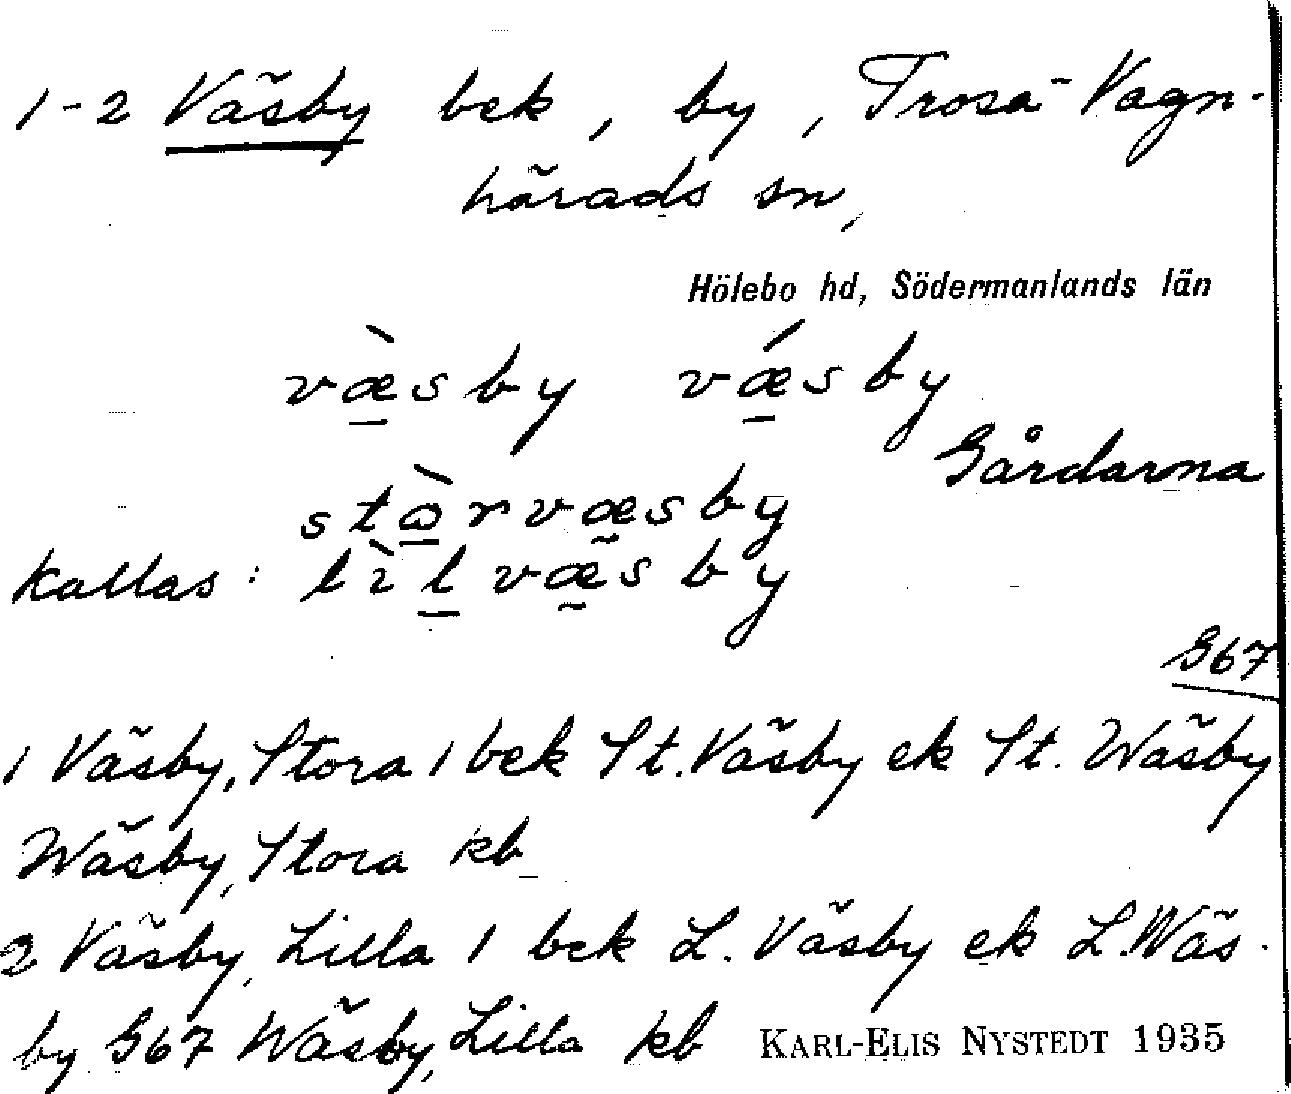 1-2 Väsby bek, by, Trosa-Vagn-
härads sn,
Hölebo hd, Södermanlands län
væ̀sby vǽsby
Gårdarna
stɷ̀rvæsby
kallas: lìlvæsby
G67
1 Väsby, Stora 1 bek St. Väsby ek St. Wäsby
Wäsby, Stora kb
2 Väsby, Lilla 1 bek L. Väsby ek L. Wäs-
by G67 Wäsby, Lilla kb KARL-ELIS NYSTEDT 1935